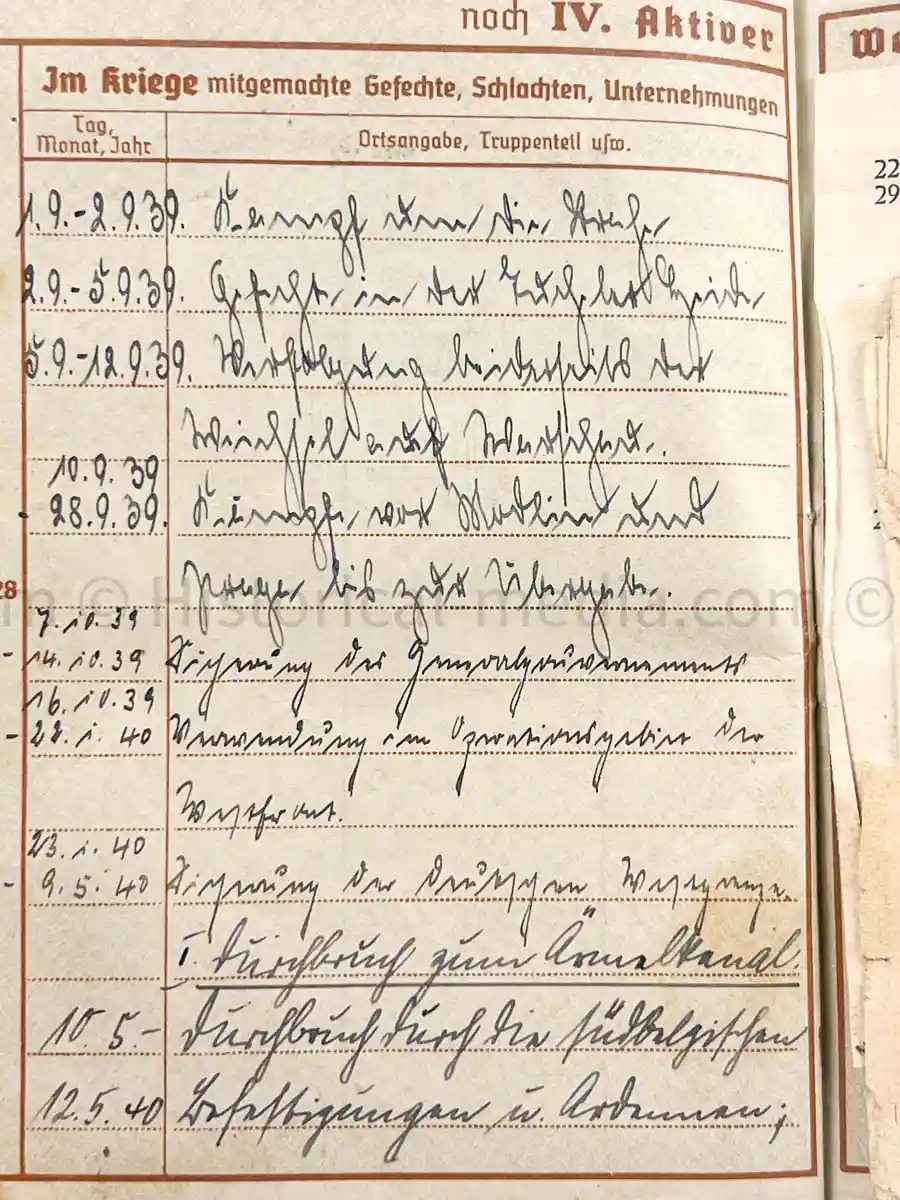 noch IV. Aktiver
Im Kriege mitgemachte Gefechte, Schlachten, Unternehmungen
Tag, Monat, Jahr
Ortsangabe, Truppenteil usw.
1.9.-2.9.39. Kampf um die Brahe
2.9.-5.9.39. Gefecht in der Tucheler Heide
5.9.-12.9.39. Verfolgung beiderseits der
Weichsel auf Warschau.
10.9.39
- 28.9.39. Kämpfe vor Modlin und
Praga bis zur Übergabe.
7.10.39
- 14.10.39 Sicherung des Generalgouvernements
16.10.39
- 22.1.40 Verwendung im Operationsgebiet der
Westfront.
23.1.40
- 9.5.40 Sicherung der deutschen Westgrenze.
I. Durchbruch zum Ärmelkanal.
10.5.- Durchbruch durch die südbelgischen
12.5.40 Befestigungen u. Ardennen;
28
22
29
© Historical-media.com ©